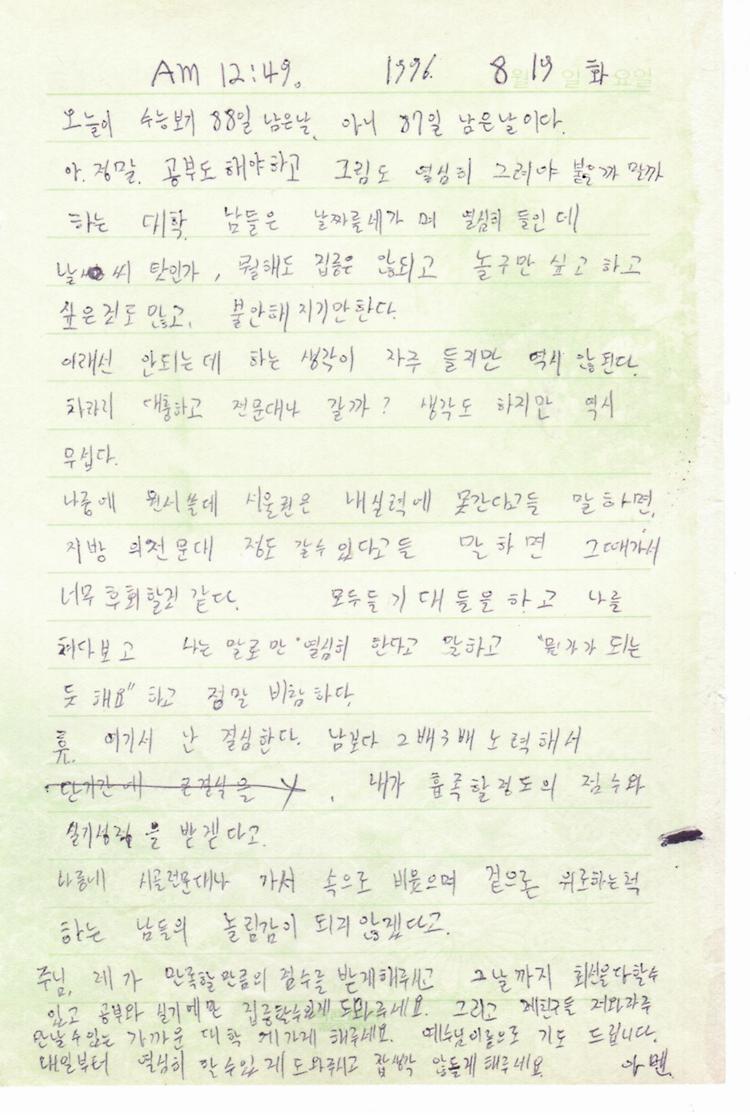 AM 12:49. 1996. 8월 19일 화요일
오늘이 수능보기 88일 남은날, 아니 87일 남은날이다.
아. 정말. 공부도 해야하고 그림도 열심히 그려야 붙을까 말까
하는 대학 남들은 날짜를세가 며 열심히 들인 데
날씨 탓인가, 뭘해도 집중은 않되고 놀구만 싶고 하고
싶은것도 많고, 불안해 지기만한다.
이래선 안되는데 하는 생각이 자주 들지만 역시 않된다.
차라리 대충하고 전문대나 갈까? 생각도 하지만 역시
무섭다.
나중에 원서쓸데 서울권은 내실력에 못간다고들 말하면,
지방 의전문대 정도 갈수있다고들 말하면 그때가서
너무후회할것 같다. 모두들 기대들을하고 나를
쳐다보고 나는 말로만 "열심히 한다고 말하고 "뭔가가 되는
듯 해요" 하고 정말 비참하다.
휴. 여기서 난 결심한다. 남보다 2배3배 노력해서
단기간에 큰결식을 . 내가 흡족할정도의 점수와
실기성적을 받겠다고.
나중에 시골전문대나 가서 속으로 비웃으며 겉으론 위로하는척
하는 남들의 놀림감이 되지 않겠다고.
주님, 제가 만족할만큼의 점수를 받게해주시고 그날까지 최선을다할수
있고 공부와 실기에만 집중할수있게 도와주세요. 그리고 제친구들 저와자주
만날수있는 가까운 대학에가게 해주세요. 예수님이름으로 기도 드립니다.
내일부터 열심히 할수있게 도와주시고 잡생각 않들게해주세요. 아멘.